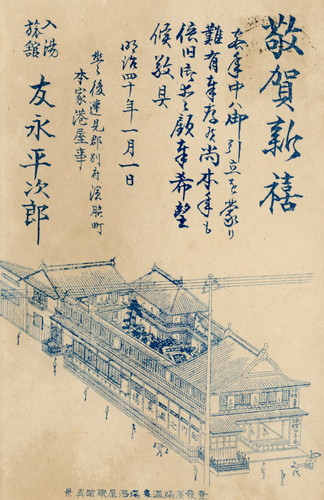 敬賀新禧
客年中ハ御引立を蒙り
難有奉存候尚本年も
倍旧御愛顧奉希望
候敬具
明治四十年一月一日
豊後速見郡別府濱脇町
本家港屋事
入湯
旅舘
友永平次郎